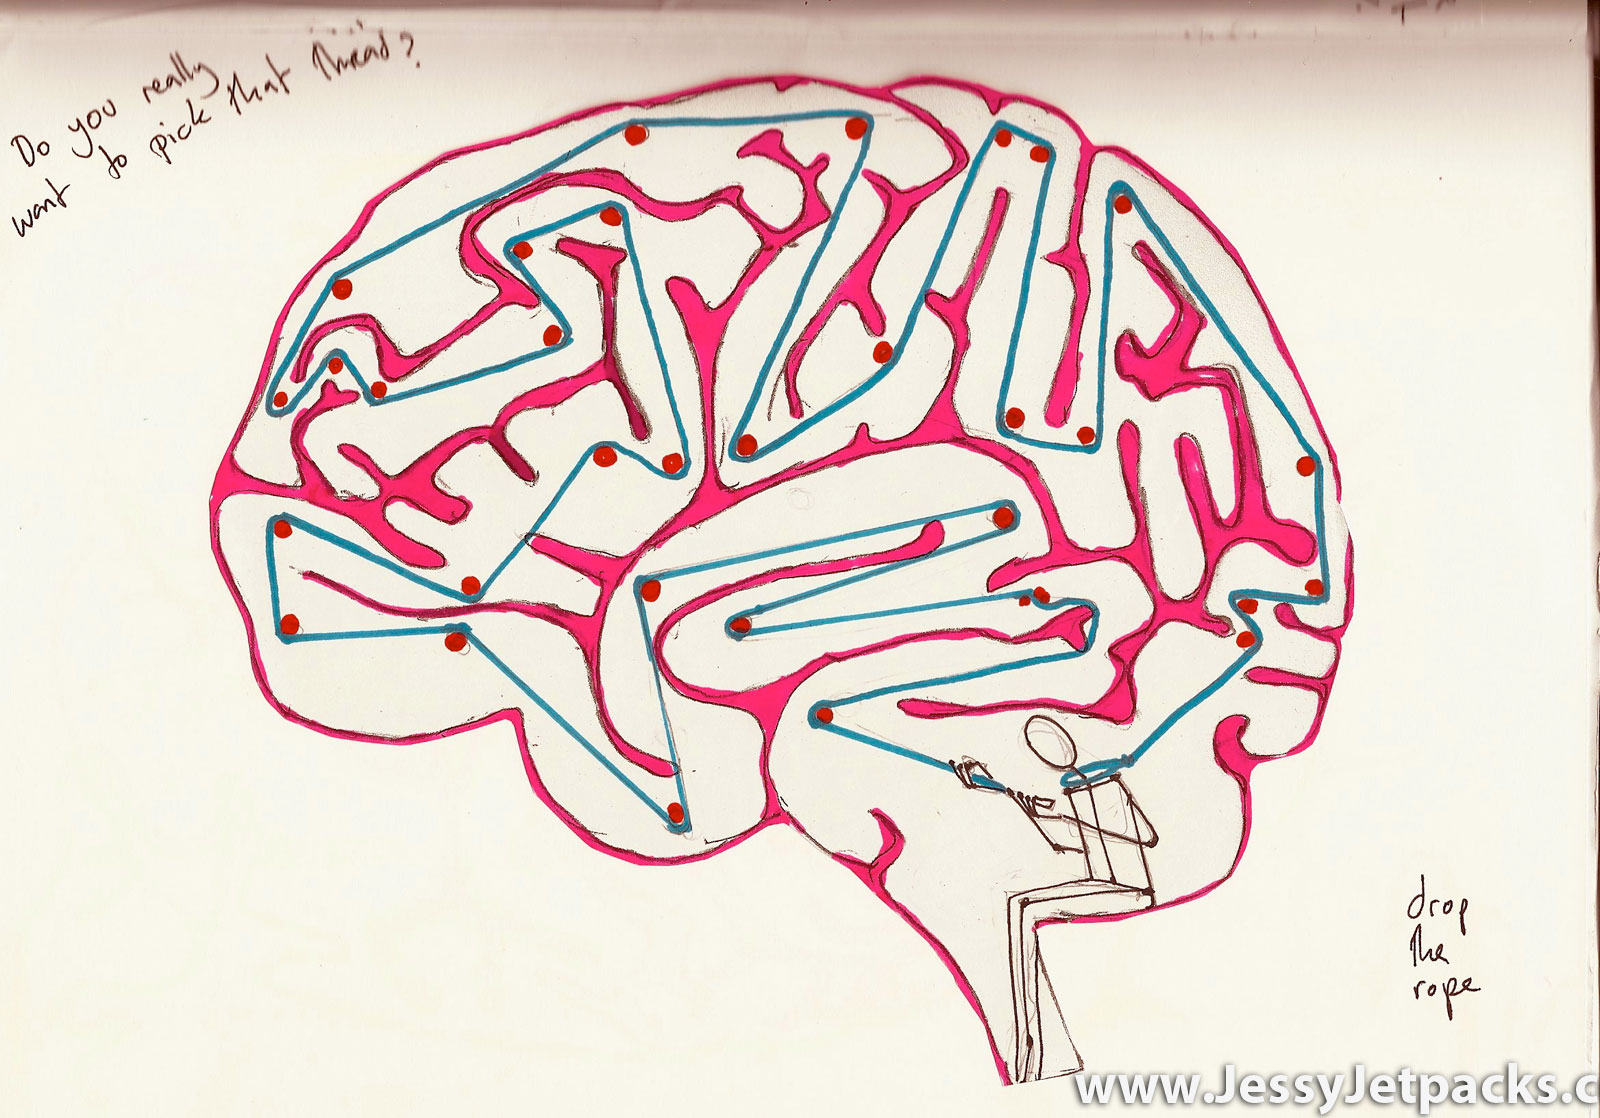 Do you really
want to pick that thread?
drop
the
rope
www.JessyJetpacks.c